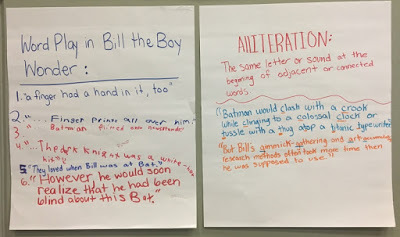 Word Play in Bill the Boy
Wonder:
1. "a finger had a hand in it, too"
2. "... Finger prints all over him.
3. Batman flitted onto newsstands"
4. "The dark knight was a white-hot
hit."
5. "They loved when Bill was at Bat."
6. "However, he would soon
realize that he had been
blind about this Bat."
ALLITERATION:
The same letter or sound at the
begining of adjacent or connected
words
"Batman would clash with a crook
while clinging to a colossal clock or
tussle with a thug atop a titanic typewriter"
"But Bill's gimmick-gathering and art-
research methods often took more time then
he was supposed to use."